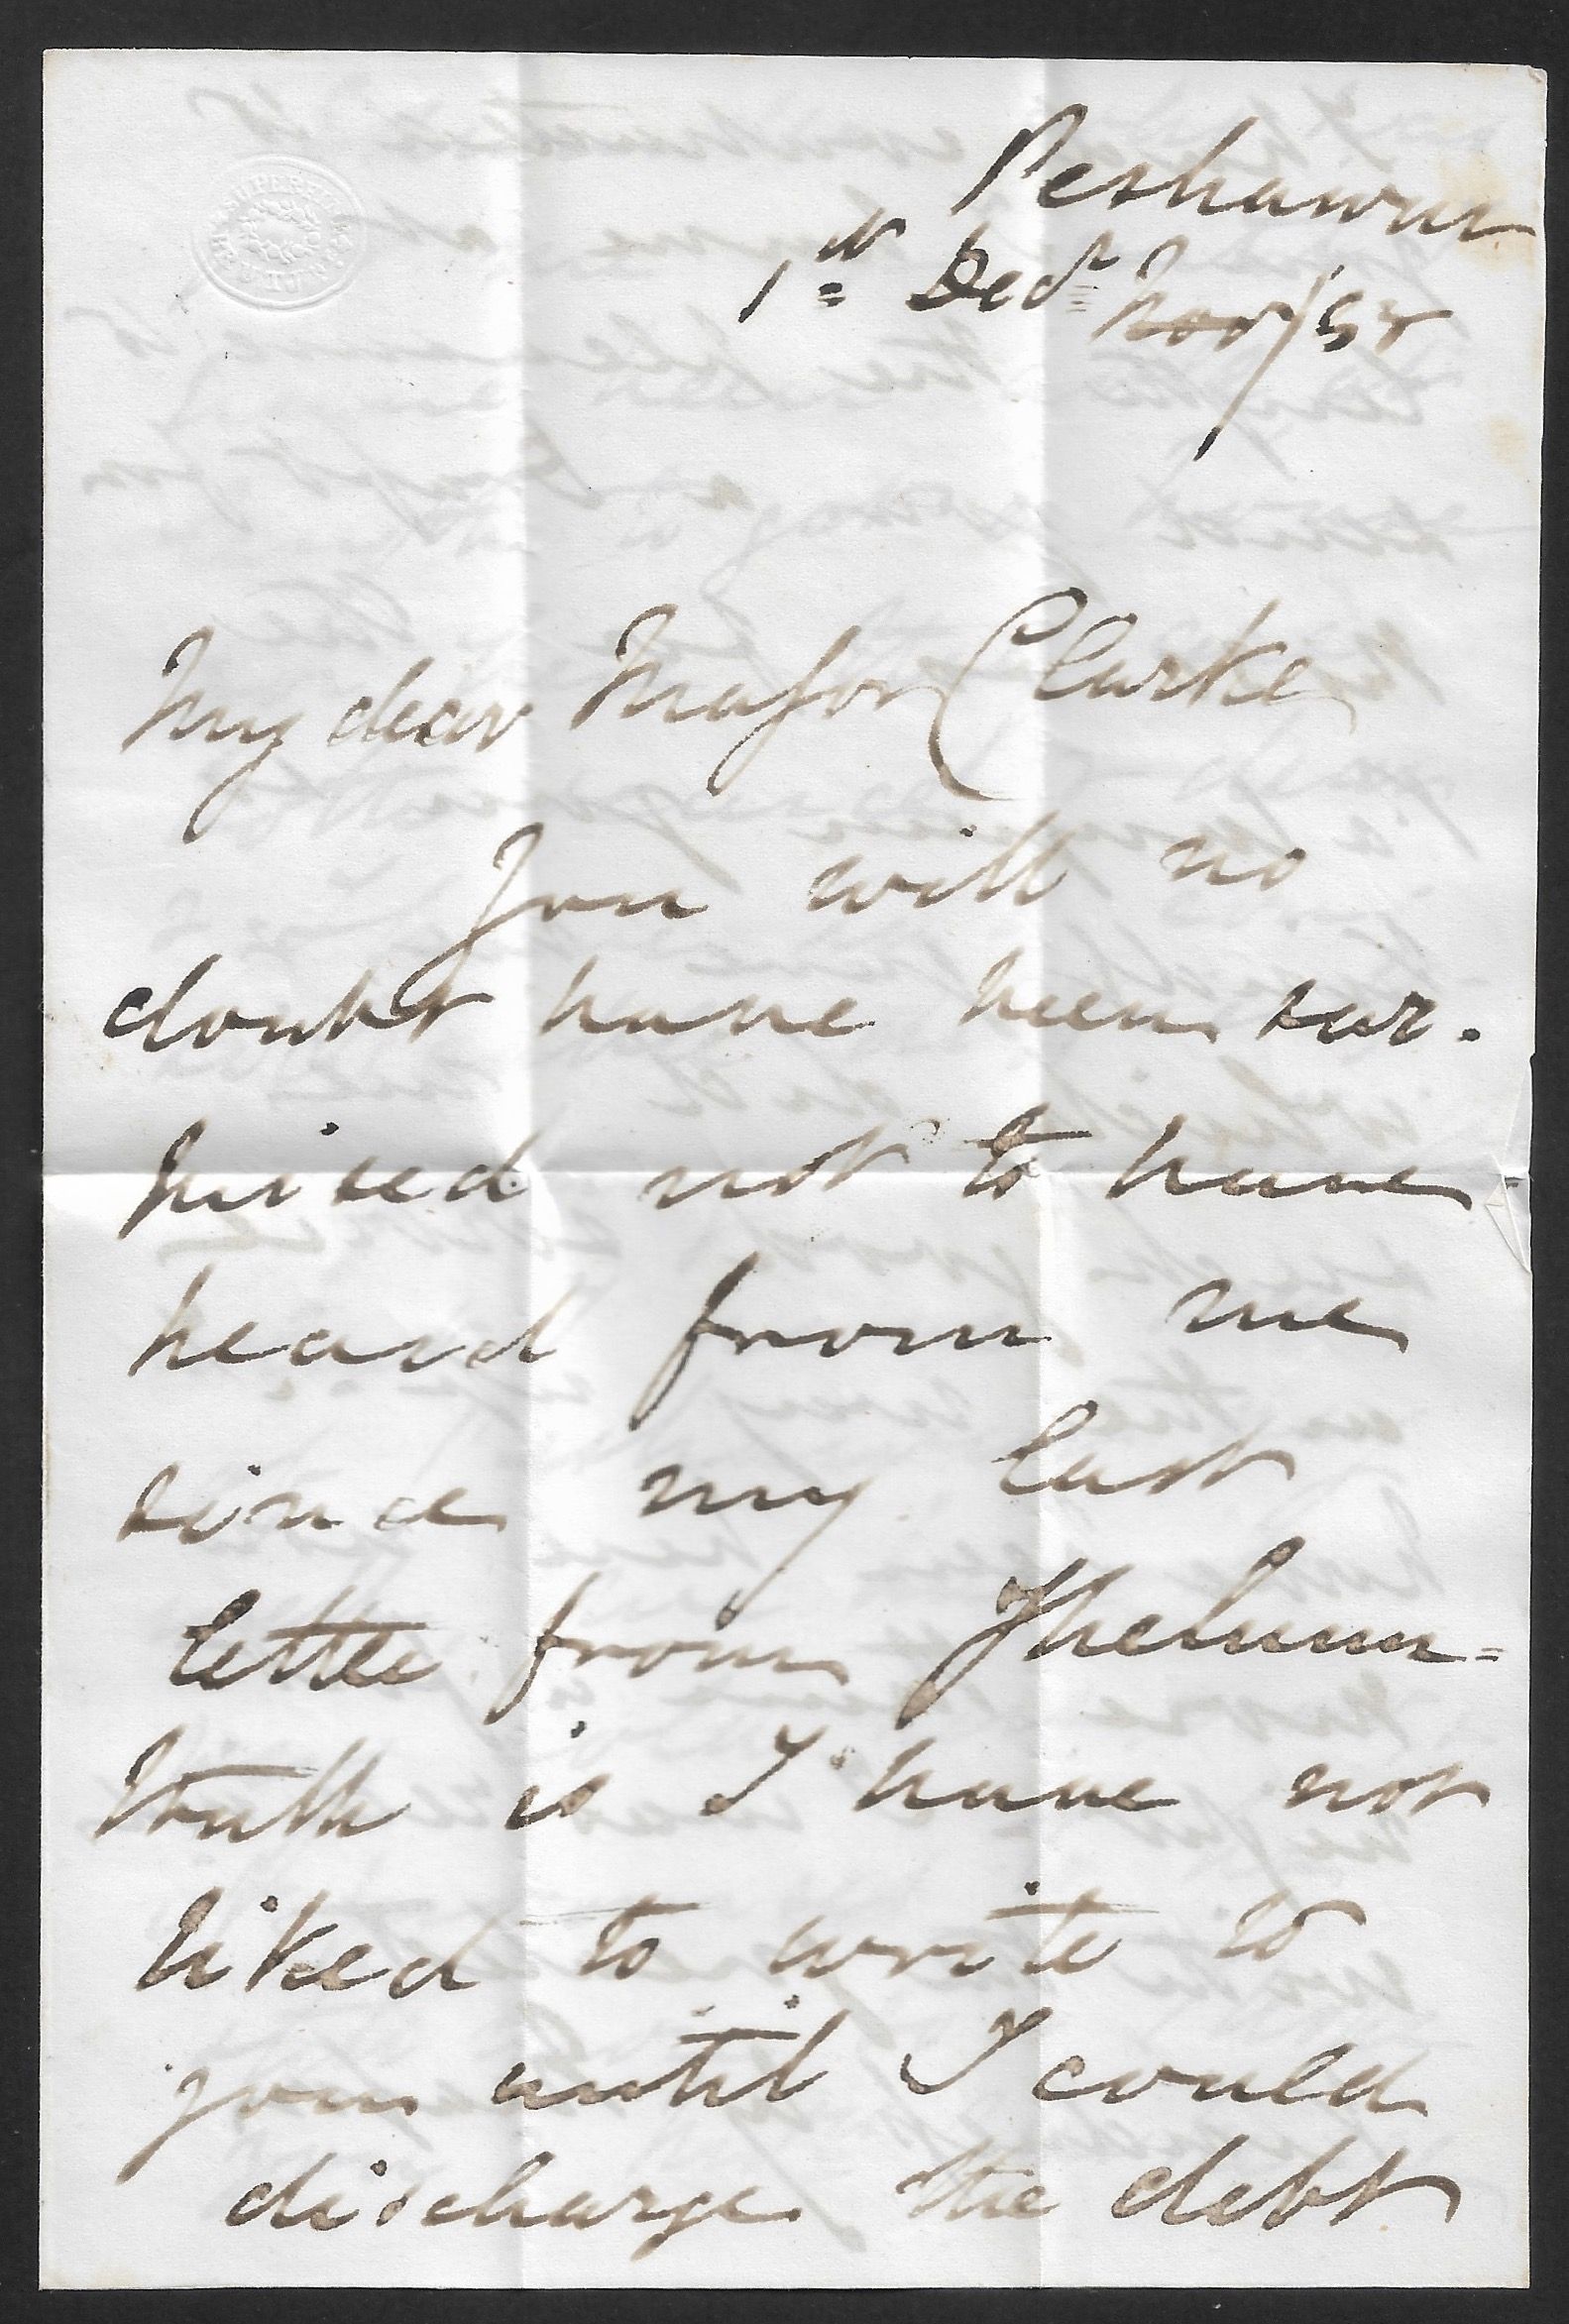 Peshawur
1st Decr Nov/58
My dear Major Clarke
You will no
doubt have been sur.
prised not to have
heard from me
since my last
letter from Jhelum=
truth is I have not
liked to write to
you until I could
discharge the debt